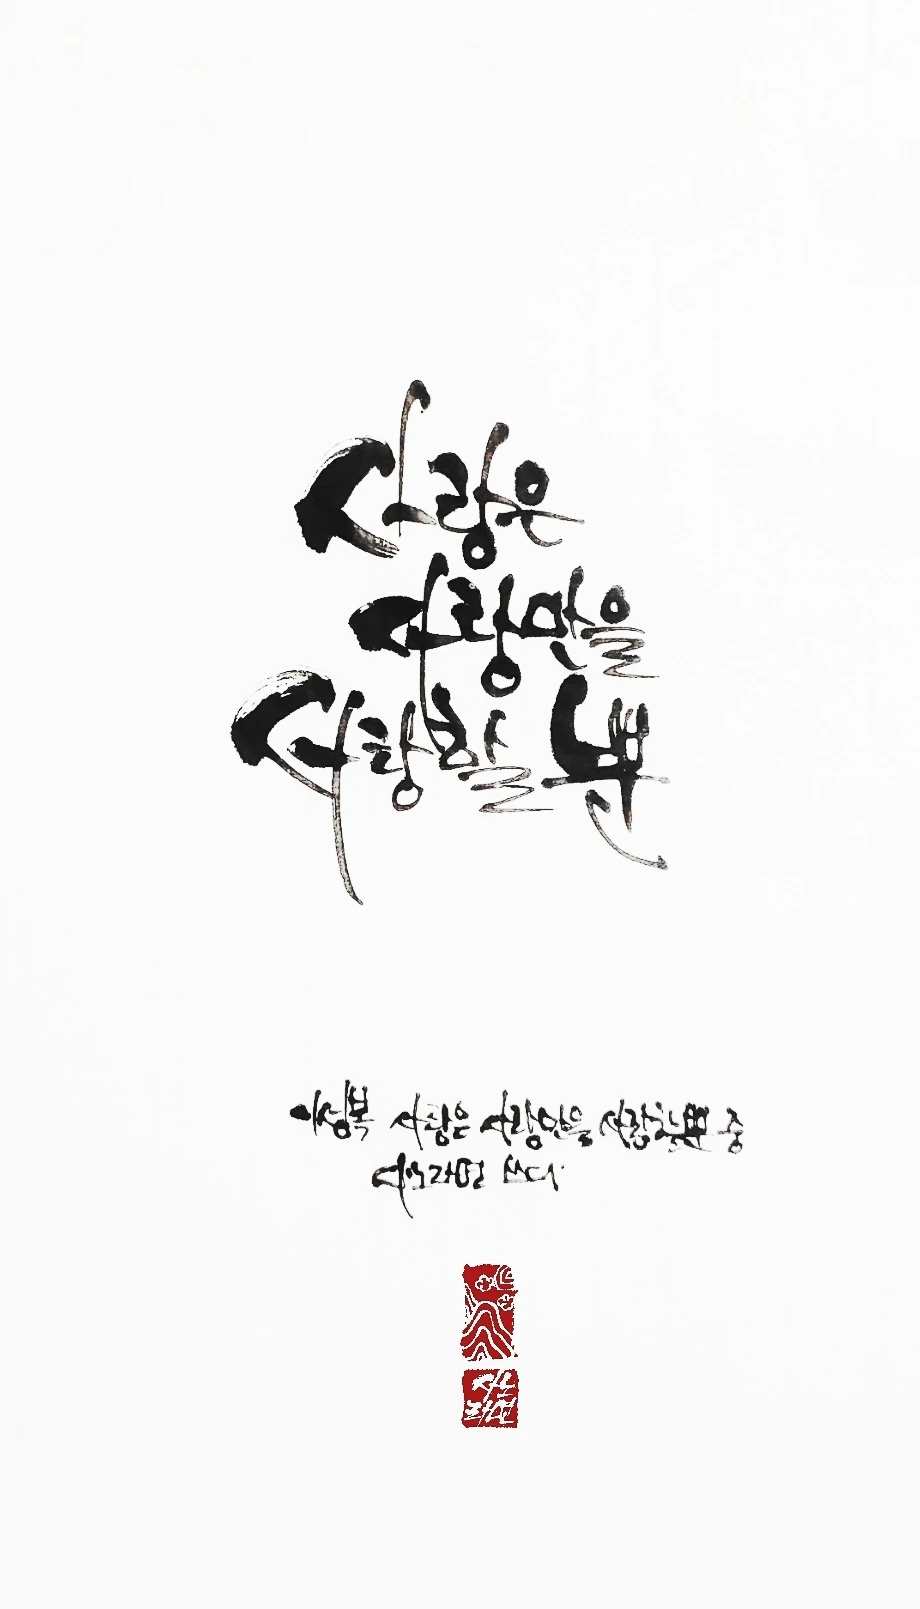 사랑은
사랑만을
사랑할 뿐
이성복 사랑은 사랑만을 사랑할 뿐 중
쓰다